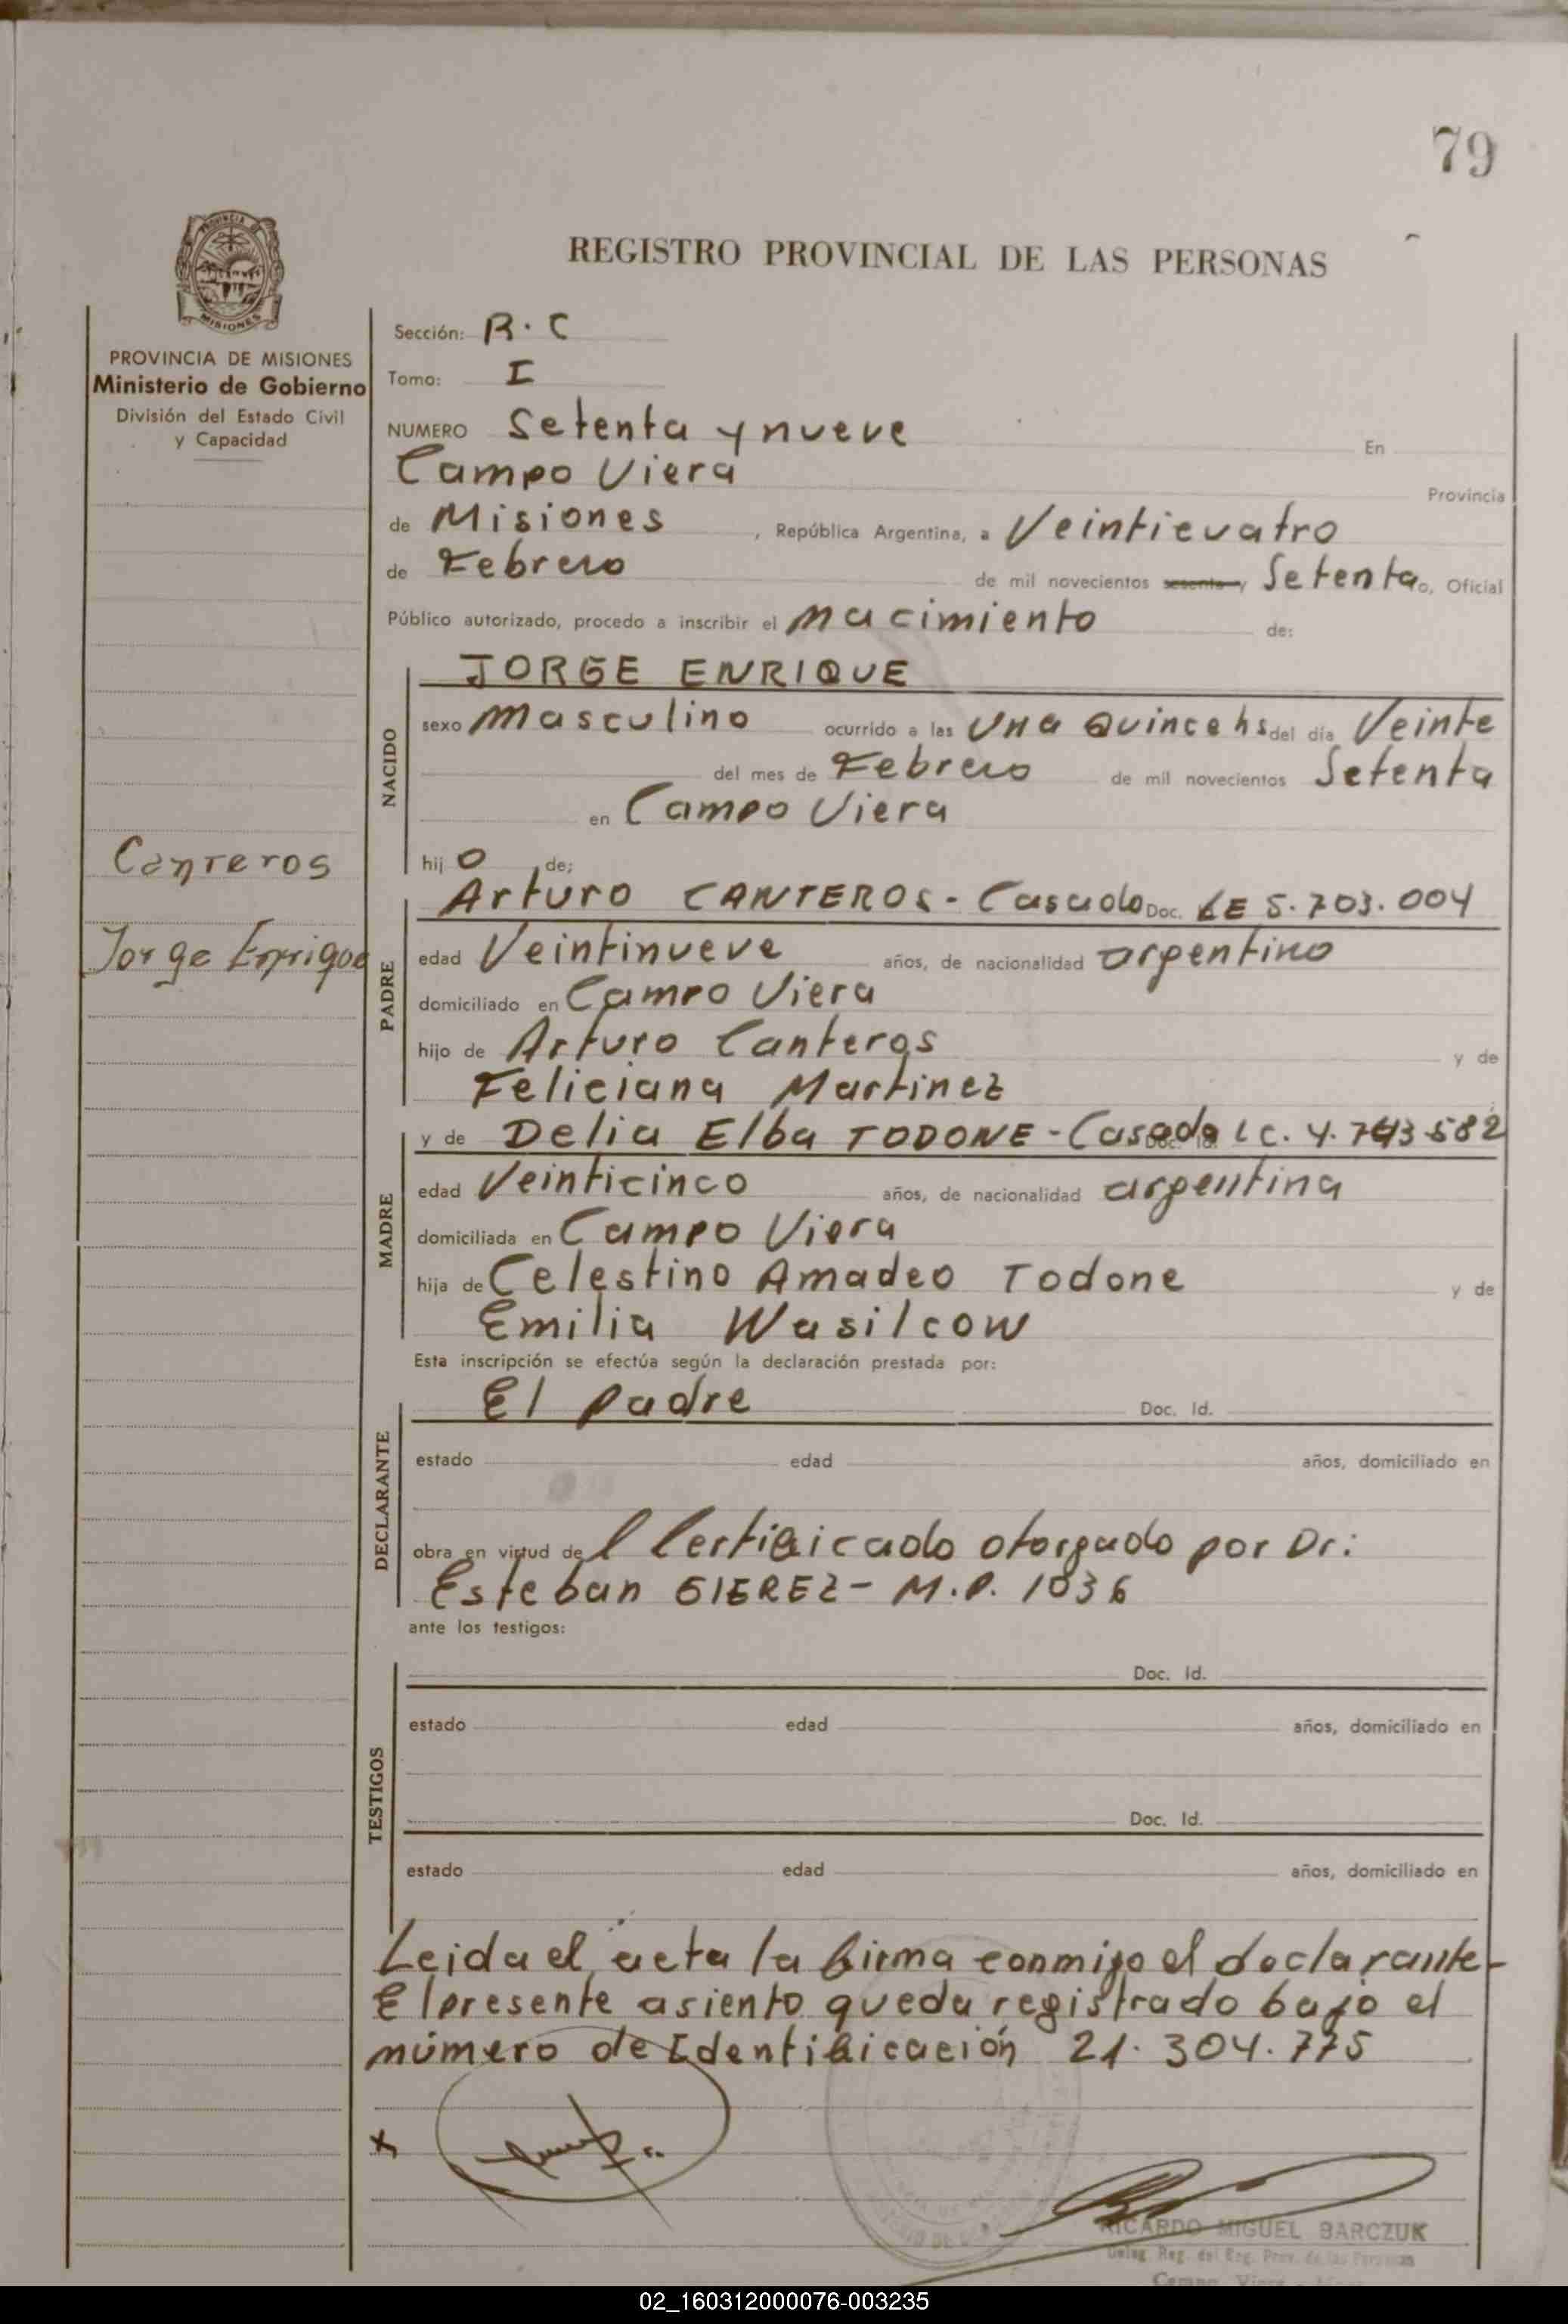 79
PROVINCIA DE MISIONES
Ministerio de Gobierno
División del Estado Civil
y Capacidad
Canteros
Jorge Enrique
REGISTRO PROVINCIAL DE LAS PERSONAS
Sección: R.C
Tomo: I
NUMERO Setenta y nueve En
Campo Viera Provincia
de Misiones, República Argentina, a Veinticuatro
de Febrero de mil novecientos sesenta y Setenta o, Oficial
Público autorizado, procedo a inscribir el nacimiento de:
NACIDO
JORGE ENRIQUE
sexo masculino ocurrido a las una quince hs del día Veinte
del mes de Febrero de mil novecientos Setenta
en Campo Viera
hijo de;
PADRE
Arturo CANTEROS - Casado Doc. LE 5.703.004
edad Veintinueve años, de nacionalidad argentino
domiciliado en Campo Viera
hijo de Arturo Canteros y de
Feliciana Martinez
MADRE
y de Delia Elba TODONE - Casada LC. 4.743.582
edad Veinticinco años, de nacionalidad argentina
domiciliada en Campo Viera
hija de Celestino Amadeo Todone y de
Emilia Wasilcow
Esta inscripción se efectúa según la declaración prestada por:
DECLARANTE
El padre Doc. Id.
estado edad años, domiciliado en
obra en virtud del Certificado otorgado por Dr:
Esteban GIEREZ - M.P. 1036
ante los testigos:
TESTIGOS
Doc. Id.
estado edad años, domiciliado en
Doc. Id.
estado edad años, domiciliado en
Leida el acta la firma conmigo el declarante-
El presente asiento queda registrado bajo el
número de Identificación 21.304.775
RICARDO MIGUEL BARCZUK
Deleg. Reg. del Reg. Prov. de las Personas
Campo Viera
02_160312000076-003235